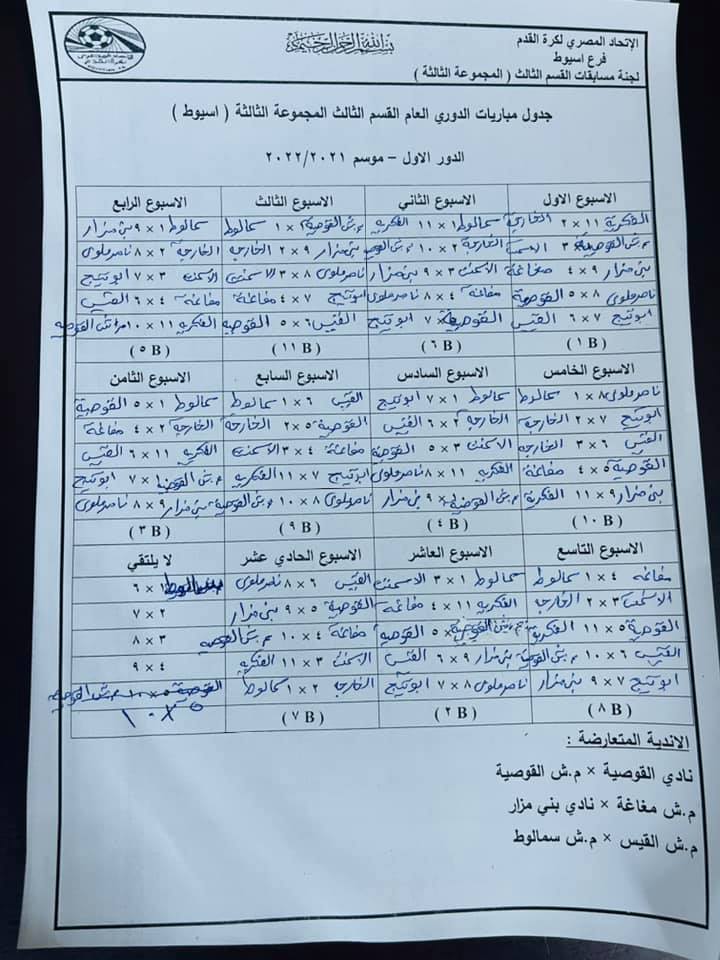 الإتحاد المصري لكرة القدم
فرع اسيوط
لجنة مسابقات القسم الثالث ( المجموعة الثالثة )
بسم الله الرحمن الرحيم
جدول مباريات الدوري العام القسم الثالث المجموعة الثالثة ( اسيوط )
الدور الاول – موسم ٢٠٢٢/٢٠٢١
الاسبوع الاول الاسبوع الثاني الاسبوع الثالث الاسبوع الرابع
الفكرية ١١ × ٢ الخارجة سمالوط ١ × ١١ الفكرية م.ش القوصية × ١ سمالوط سمالوط ١ × ٩ بني مزار
م.ش القوصية × ٣ الاسمنت الخارجة ٢ × ١٠ م.ش القوصية بني مزار ٩ × ٢ الخارجة الخارجة ٢ × ٨ ناصر ملوى
بنى مزار ٩ × ٤ مغاغة الاسمنت ٣ × ٩ بنى مزار ناصر ملوى ٨ × ٣ الاسمنت الاسمنت ٣ × ٧ ابوتيج
ناصر ملوى ٨ × ٥ القوصية مغاغة ٤ × ٨ ناصر ملوى ابوتيج ٧ × ٤ مغاغة مغاغة ٤ × ٦ القيس
ابوتيج ٧ × ٦ القيس القوصية × ٧ ابوتيج القيس ٦ × ٥ القوصية الفكرية ١١ × ١٠ م.ش القوصية
( ١ B ) ( ٦ B ) ( ١١ B ) ( ٥ B )
الاسبوع الخامس الاسبوع السادس الاسبوع السابع الاسبوع الثامن
ناصر ملوى ٨ × ١ سمالوط سمالوط ١ × ٧ ابوتيج القيس ٦ × ١ سمالوط سمالوط ١ × ٥ القوصية
ابوتيج ٧ × ٢ الخارجة الخارجة ٢ × ٦ القيس القوصية ٥ × ٢ الخارجة الخارجة ٢ × ٤ مغاغة
القيس ٦ × ٣ الاسمنت ٣ × ٥ القوصية مغاغة ٤ × ٣ الاسمنت الفكرية ١١ × ٦ القيس
القوصية ٥ × ٤ مغاغة الفكرية ١١ × ٨ ناصر ملوى ابوتيج ٧ × ١١ الفكرية م.ش القوصية × ٧ ابوتيج
بنى مزار ٩ × ١١ الفكرية م.ش القوصية × ٩ بنى مزار ناصر ملوى ٨ × ١٠ م.ش القوصية بنى مزار ٩ × ٨ ناصر ملوى
( ١٠ B ) ( ٤ B ) ( ٩ B ) ( ٣ B )
الاسبوع التاسع الاسبوع العاشر الاسبوع الحادي عشر لا يلتقي
مغاغة ٤ × ١ سمالوط سمالوط ١ × ٣ الاسمنت القيس ٦ × ٨ ناصر ملوى × ٦
الاسمنت ٣ × ٢ الخارجة الفكرية ١١ × ٤ مغاغة القوصية ٥ × ٩ بنى مزار ٢ × ٧
القوصية ٥ × ١١ الفكرية م.ش القوصية × ٥ القوصية مغاغة ٤ × ١٠ م.ش القوصية ٣ × ٨
القيس ٦ × ١٠ م.ش القوصية بنى مزار ٩ × ٦ القيس الاسمنت ٣ × ١١ الفكرية ٤ × ٩
ابوتيج ٧ × ٩ بنى مزار ناصر ملوى ٨ × ٧ ابوتيج الخارجة ٢ × ١ سمالوط
( ٨ B ) ( ٢ B ) ( ٧ B ) ٥ × ١٠
الاندية المتعارضة :
نادي القوصية × م.ش القوصية
م.ش مغاغة × نادي بني مزار
م.ش القيس × م.ش سمالوط